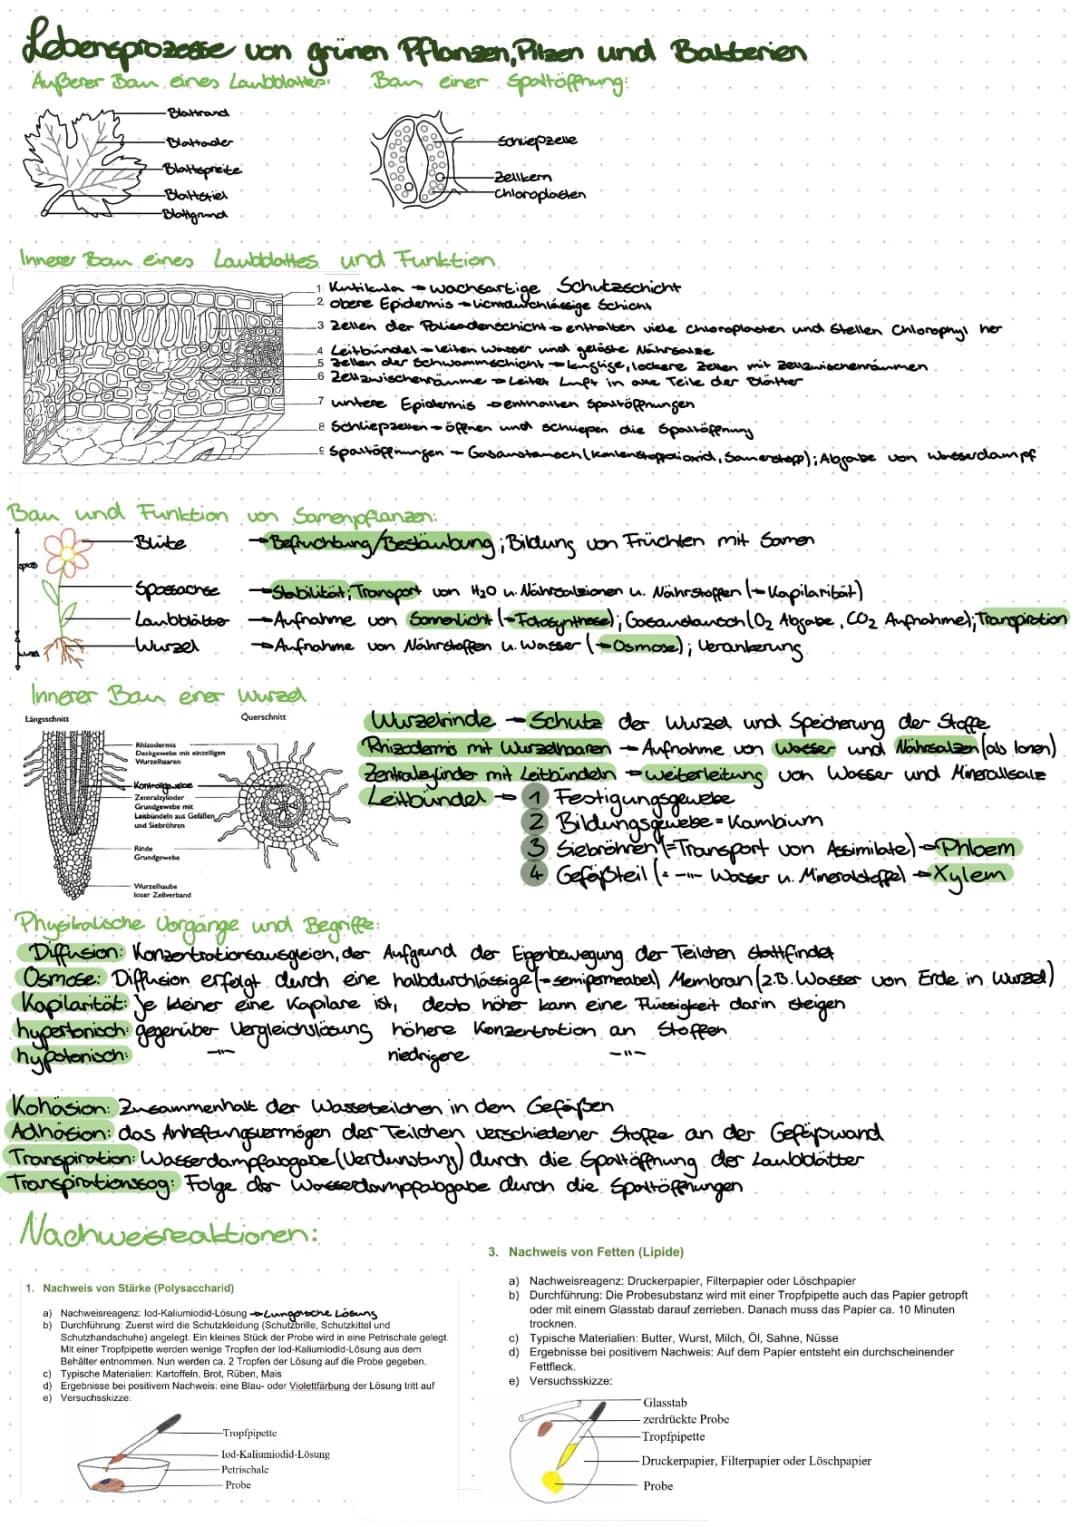 Lebensprozesse von grünen Pflanzen, Pilzen und Bakterien
Äußerer Bau eines Laubblattes:
Bau einer Spaltöffnung:
Blattrand
Blattader
Blattspreite
Blattstiel
Blattgrund
Schließzelle
Zellkern
Chloroplasten
Innerer Bau eines Laubblattes und Funktion
1 Kutikula → wachsartige Schutzschicht
2 obere Epidermis → lichtdurchlässige Schicht
3 Zellen der Palisadenschicht → enthalten viele Chloroplasten und stellen Chlorophyl her
4 Leitbündel → leiten Wasser und gelöste Nährsalze
5 Zellen der Schwammschicht → länglige, lockere Zellen mit Zellzwischenräumen
6 Zellzwischenräume → Leitet Luft in alle Teile der Blätter
7 untere Epidermis → enthalten Spaltöffnungen
8 Schließzellen → öffnen und schließen die Spaltöffnung
9 Spaltöffnungen → Gasaustausch (Kohlenstoffdioxid, Sauerstoff); Abgabe von Wasserdampf
Bau und Funktion von Samenpflanzen:
Blüte → Befruchtung/Bestäubung; Bildung von Früchten mit Samen
Sprossachse → Stabilität; Transport von H2O u. Nährsalzionen u. Nährstoffen (→ Kapilarität)
Laubblätter → Aufnahme von Sonnenlicht (→ Fotosynthese); Gasaustausch (O2 Abgabe, CO2 Aufnahme); Transpiration
Wurzel → Aufnahme von Nährstoffen u. Wasser (→ Osmose); Verankerung
Innerer Bau einer Wurzel
Längsschnitt
Querschnitt
Rhizodermis
Deckgewebe mit einzelligen
Wurzelhaaren
Zentralzylinder
Grundgewebe mit
Leitbündeln aus Gefäßen
und Siebröhren
Rinde
Grundgewebe
Wurzelhaube
loser Zellverband
Wurzelrinde → Schutz der Wurzel und Speicherung der Stoffe
Rhizodermis mit Wurzelhaaren → Aufnahme von Wasser und Nährsalzen (als Ionen)
Zentralzylinder mit Leitbündeln → Weiterleitung von Wasser und Minerallsalz
Leitbündel → 1 Festigungsgewebe
2 Bildungsgewebe = Kambium
3 Siebröhren (= Transport von Assimilate) → Phloem
4 Gefäßteil (= -"- Wasser u. Mineralstoffe) → Xylem
Physikalische Vorgänge und Begriffe:
Diffusion: Konzentrationsausgleich, der Aufgrund der Eigenbewegung der Teilchen stattfindet
Osmose: Diffusion erfolgt durch eine halbdurchlässige (→ semipermeabel) Membran (z.B. Wasser von Erde in Wurzel)
Kapilarität: je kleiner eine Kapilare ist, desto höher kann eine Flüssigkeit darin steigen
hypertonisch: gegenüber Vergleichslösung höhere Konzentration an Stoffen
hypotonisch: -"- niedrigere -"-
Kohäsion: Zusammenhalt der Wasserteilchen in dem Gefäßen
Adhäsion: das Anheftungsvermögen der Teilchen verschiedener Stoffe an der Gefäßwand
Transpiration: Wasserdampfabgabe (Verdunstung) durch die Spaltöffnung der Laubblätter
Transpirationssog: Folge der Wasserdampfabgabe durch die Spaltöffnungen
Nachweisreaktionen:
1. Nachweis von Stärke (Polysaccharid)
a) Nachweisreagenz: Iod-Kaliumiodid-Lösung → Lungolsche Lösung
b) Durchführung: Zuerst wird die Schutzkleidung (Schutzbrille, Schutzkittel und
Schutzhandschuhe) angelegt. Ein kleines Stück der Probe wird in eine Petrischale gelegt.
Mit einer Tropfpipette werden wenige Tropfen der Iod-Kaliumiodid-Lösung aus dem
Behälter entnommen. Nun werden ca. 2 Tropfen der Lösung auf die Probe gegeben.
c) Typische Materialien: Kartoffeln, Brot, Rüben, Mais
d) Ergebnisse bei positivem Nachweis: eine Blau- oder Violettfärbung der Lösung tritt auf
e) Versuchsskizze:
Tropfpipette
Iod-Kaliumiodid-Lösung
Petrischale
Probe
3. Nachweis von Fetten (Lipide)
a) Nachweisreagenz: Druckerpapier, Filterpapier oder Löschpapier
b) Durchführung: Die Probesubstanz wird mit einer Tropfpipette auch das Papier getropft
oder mit einem Glasstab darauf zerrieben. Danach muss das Papier ca. 10 Minuten
trocknen.
c) Typische Materialien: Butter, Wurst, Milch, Öl, Sahne, Nüsse
d) Ergebnisse bei positivem Nachweis: Auf dem Papier entsteht ein durchscheinender
Fettfleck.
e) Versuchsskizze:
Glasstab
zerdrückte Probe
Tropfpipette
Druckerpapier, Filterpapier oder Löschpapier
Probe